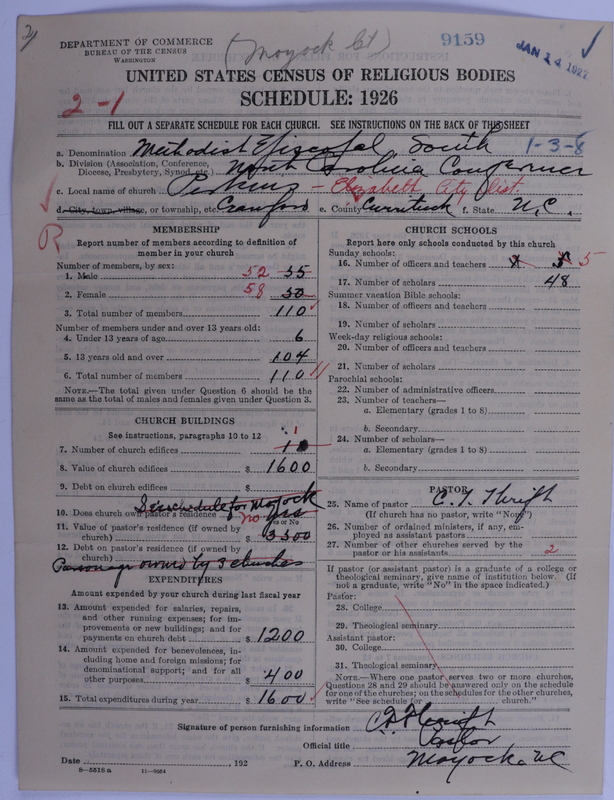 DEPARTMENT OF COMMERCE
BUREAU OF THE CENSUS
WASHINGTON
(Moyock Ct)
9159
JAN 14 1927
UNITED STATES CENSUS OF RELIGIOUS BODIES
SCHEDULE: 1926
2-1
FILL OUT A SEPARATE SCHEDULE FOR EACH CHURCH. SEE INSTRUCTIONS ON THE BACK OF THIS SHEET
a. Denomination Methodist Episcopal, South 1-3-8
b. Division (Association, Conference, Diocese, Presbytery, Synod, etc.) North Carolina Conference
c. Local name of church Perkins - Elizabeth City Dist.
d. City, town, village, or township, etc. Crawford e. County Currituck f. State N.C.
R
MEMBERSHIP
Report number of members according to definition of
member in your church
Number of members, by sex:
1. Male 52 55
2. Female 58 50
3. Total number of members 110
Number of members under and over 13 years old:
4. Under 13 years of age 6
5. 13 years old and over 104
6. Total number of members 110
NOTE.—The total given under Question 6 should be the
same as the total of males and females given under Question 3.
CHURCH BUILDINGS
See instructions, paragraphs 10 to 12
7. Number of church edifices 1
8. Value of church edifices $ 1600
9. Debt on church edifices $
See schedule for Moyock
10. Does church own pastor's residence? no yes
Yes or No
11. Value of pastor's residence (if owned by
church) $ 3500
12. Debt on pastor's residence (if owned by
church) $
Parsonage owned by 3 churches
EXPENDITURES
Amount expended by your church during last fiscal year
13. Amount expended for salaries, repairs,
and other running expenses; for im-
provements or new buildings; and for
payments on church debt $ 1200
14. Amount expended for benevolences, in-
cluding home and foreign missions; for
denominational support; and for all
other purposes $ 400
15. Total expenditures during year $ 1600
CHURCH SCHOOLS
Report here only schools conducted by this church
Sunday schools:
16. Number of officers and teachers 5
17. Number of scholars 48
Summer vacation Bible schools:
18. Number of officers and teachers
19. Number of scholars
Week-day religious schools:
20. Number of officers and teachers
21. Number of scholars
Parochial schools:
22. Number of administrative officers
23. Number of teachers—
a. Elementary (grades 1 to 8)
b. Secondary
24. Number of scholars—
a. Elementary (grades 1 to 8)
b. Secondary
PASTOR
25. Name of pastor C. T. Thrift
(If church has no pastor, write "None")
26. Number of ordained ministers, if any, em-
ployed as assistant pastors
27. Number of other churches served by the
pastor or his assistants 2
If pastor (or assistant pastor) is a graduate of a college or
theological seminary, give name of institution below. (If
not a graduate, write "No" in the space indicated.)
Pastor:
28. College
29. Theological seminary
Assistant pastor:
30. College
31. Theological seminary
NOTE.—Where one pastor serves two or more churches,
Questions 28 and 29 should be answered only on the schedule
for one of the churches; on the schedules for the other churches,
write "See schedule for church."
Signature of person furnishing information C T Thrift
Official title Pastor
Date , 192 P. O. Address Moyock, N.C.
8-5516a 11-9664